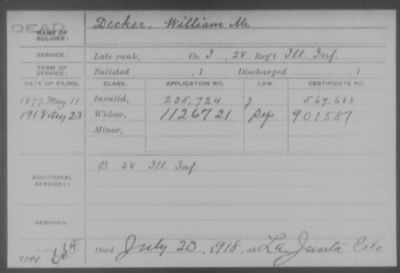 DEAD
NAME OF SOLDIER: Decker, William M.
SERVICE: Late rank, Co. I, 28 Reg't Ill. Inf.
TERM OF SERVICE: Enlisted , 1 Discharged , 1
DATE OF FILING. CLASS. APPLICATION NO. LAW. CERTIFICATE NO.
1877, May 11 Invalid, 235,724 J 567,688
1918 Aug 23 Widow, 1126721 901587
Minor,
ADDITIONAL SERVICES: B 28 Ill. Inf.
REMARKS:
Died July 23, 1918, at La Junta Colo